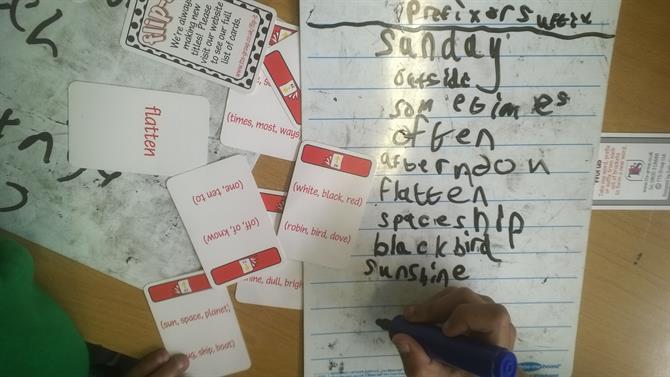 flips
We're always
making new
titles! Please
visit our website
to see our full
list of cards.
flatten
(times, most, ways)
(one, ten to)
(off, of, know)
(white, black, red)
(robin, bird, dove)
dull, brigh
(sun, space, planet)
ship, boat)
prefix or suffix
Sunday
outside
sometimes
often
afterndon
flatten
spaceship
blackbird
sunshine